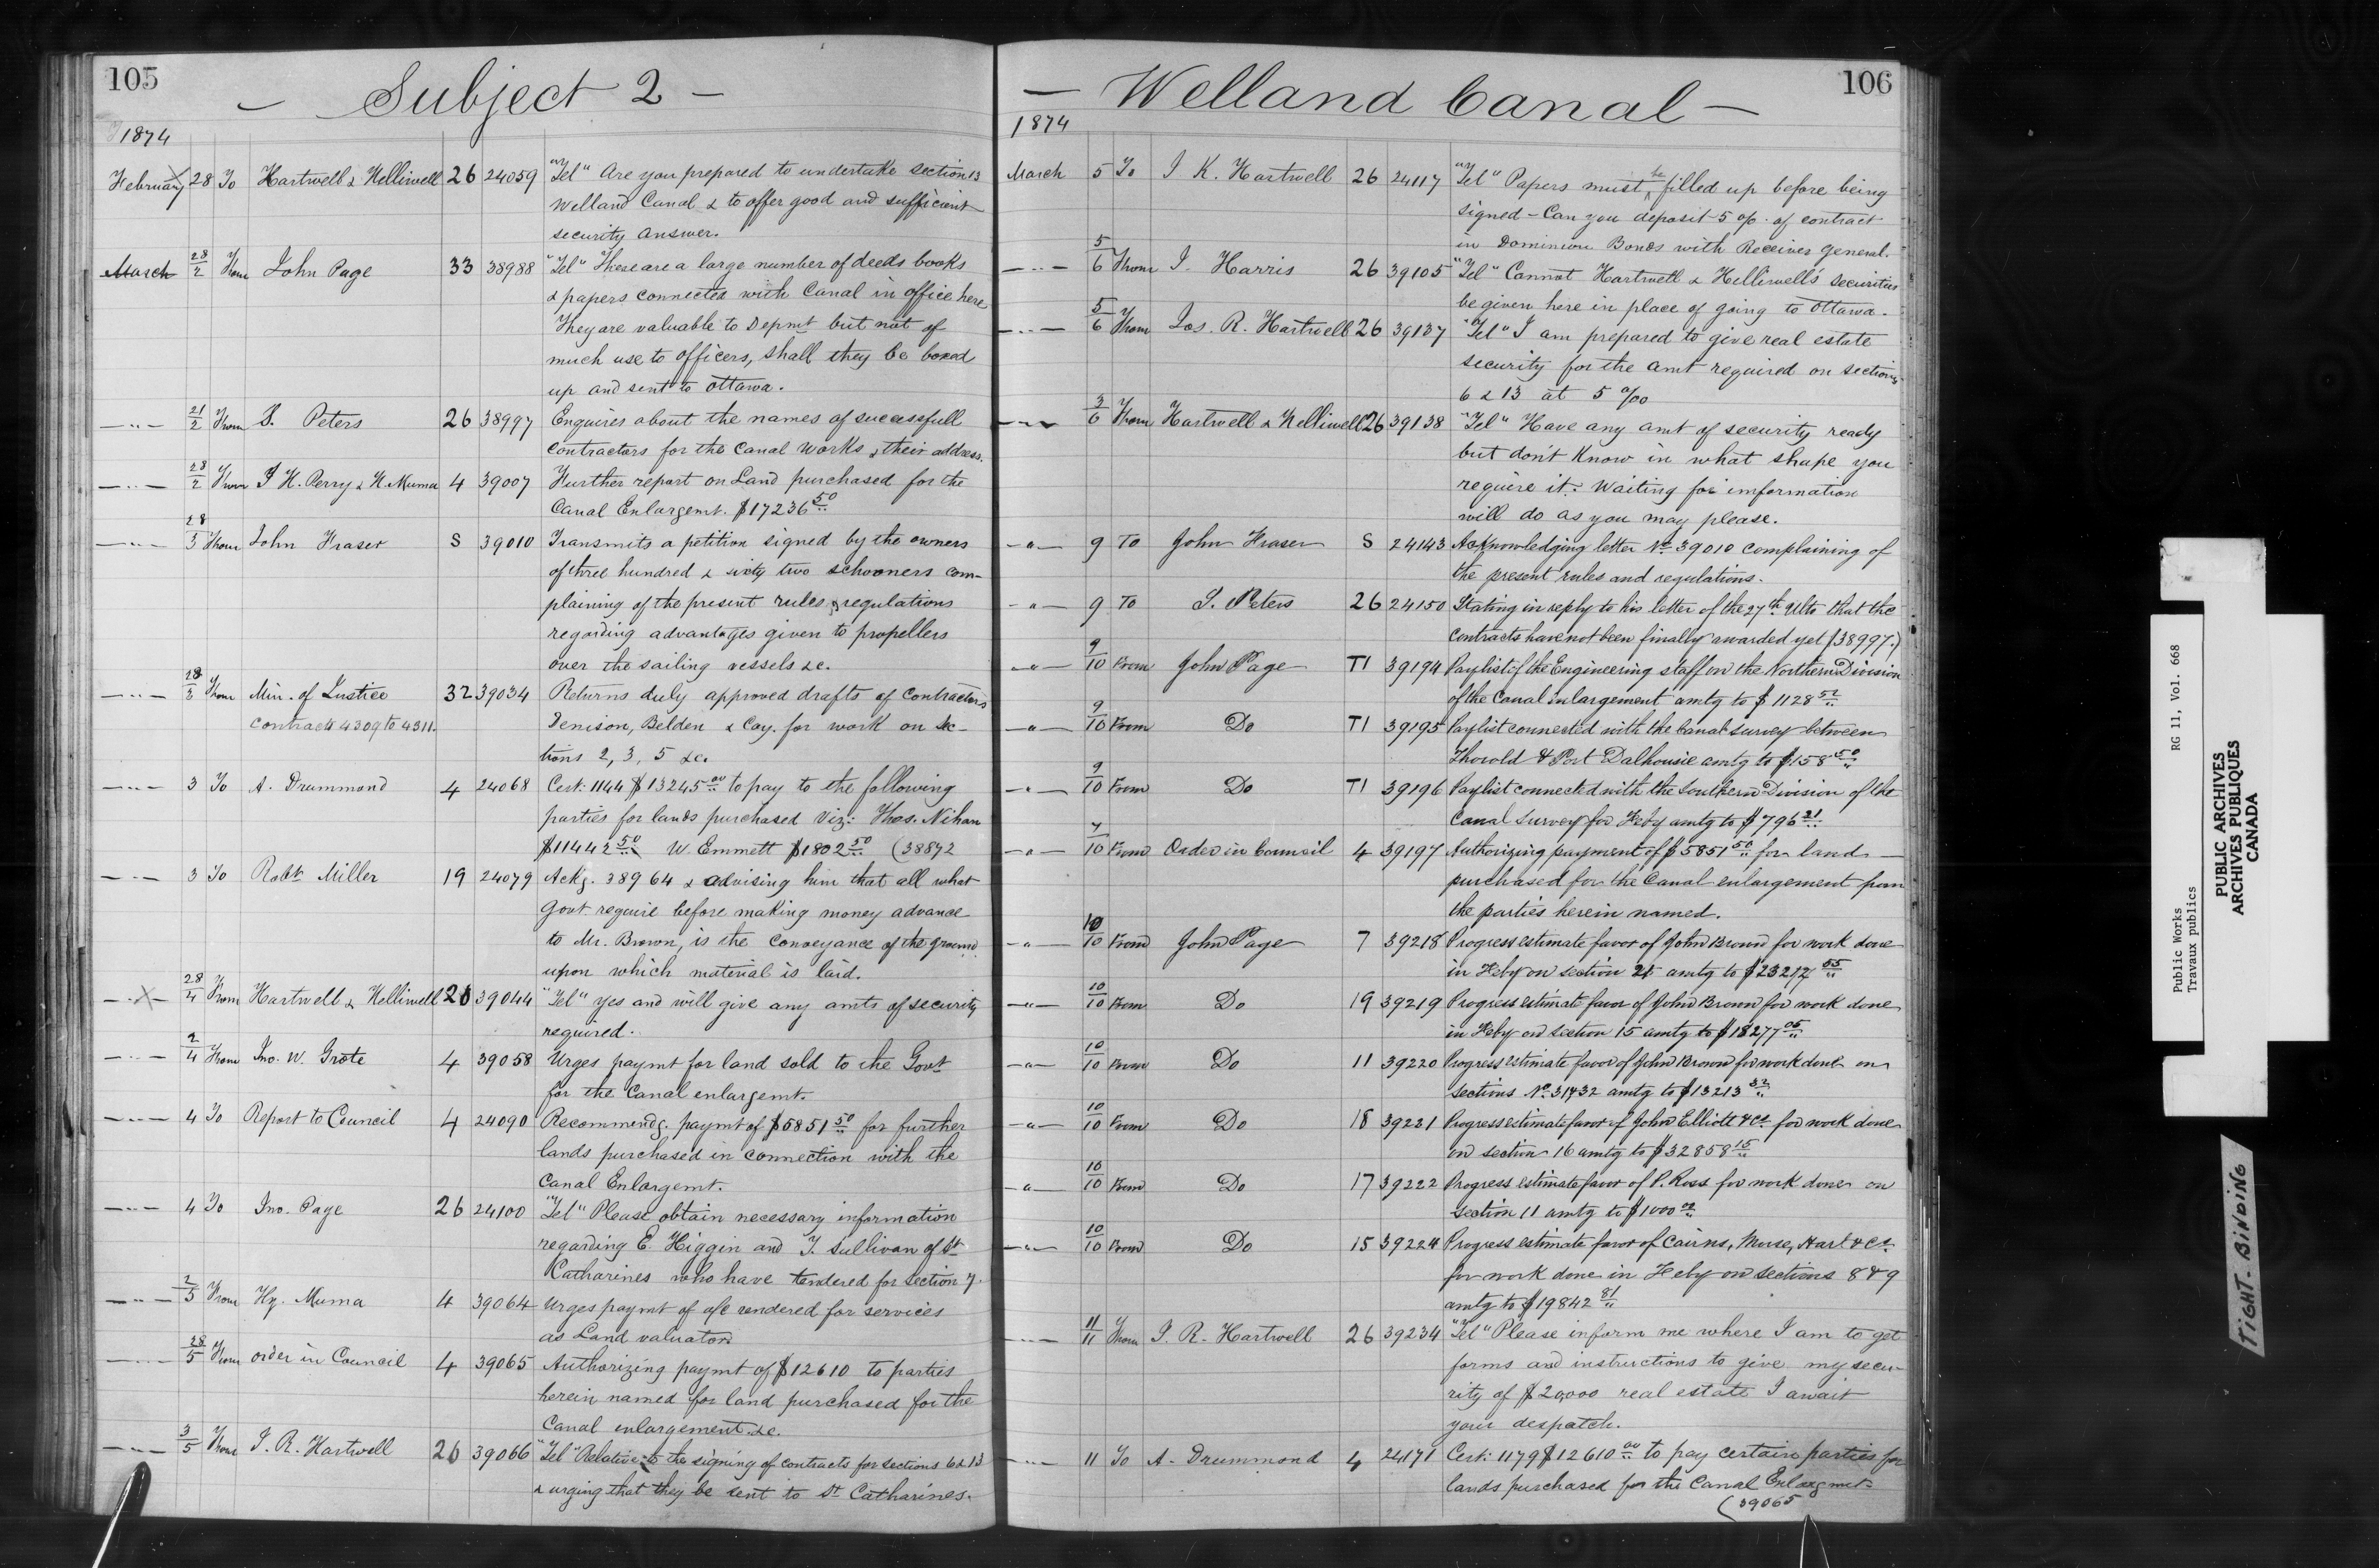 105
— Subject 2 —
1874
February 28 To Hartwell & Helliwell 26 24059 "Tel" Are you prepared to undertake section 13
Welland Canal & to offer good and sufficient
security Answer.
March 28/2 From John Page 33 38988 "Tel" There are a large number of deeds books
& papers connected with Canal in office here
They are valuable to Depmt but not of
much use to officers, shall they be boxed
up and sent to Ottawa.
—"— 21/2 From S. Peters 26 38997 Enquires about the names of successfull
contractors for the Canal works & their address.
—"— 28/2 From J H. Perry & H. Muma 4 39007 Further report on Land purchased for the
Canal Enlargemt. $17236 50
—"— 28/3 From John Fraser S 39010 Transmits a petition signed by the owners
of three hundred & sixty two schooners com-
plaining of the present rules & regulations
regarding advantages given to propellers
over the sailing vessels &c.
—"— 28/3 From Min. of Justice 32 39034 Returns duly approved drafts of contractors
contracts 4309 to 4311. Denison, Belden & Coy. for work on Sec-
tions 2, 3, 5 &c.
—"— 3 To A. Drummond 4 24068 Cert: 1144 $13245 00 to pay to the following
parties for lands purchased Viz: Thos. Nihan
$11442 50 W. Emmett $1802 50 (38872
—"— 3 To Robt Miller 19 24079 Ackg. 38964 & advising him that all what
Govt require before making money advance
to Mr. Brown, is the conveyance of the ground
upon which material is laid.
—X— 28/4 From Hartwell & Helliwell 26 39044 "Tel" yes and will give any amts of security
required.
—"— 2/4 From Jno. W. Grote 4 39058 Urges paymt for land sold to the Govt
for the Canal enlargemt.
—"— 4 To Report to Council 4 24090 Recommendg. paymt of $5851 50 for further
lands purchased in connection with the
Canal Enlargemt.
—"— 4 To Jno. Page 26 24100 "Tel" Please obtain necessary information
regarding E. Higgin and J. Sullivan of St
Catharines who have tendered for section 7.
—"— 2/5 From Hy. Muma 4 39064 Urges paymt of a/c rendered for services
as Land valuator
—"— 28/5 From order in Council 4 39065 Authorizing paymt of $12610 to parties
herein named for land purchased for the
Canal enlargement &c.
—"— 3/5 From J. R. Hartwell 26 39066 "Tel" Relative to the signing of contracts for sections 6 & 13
& urging that they be sent to St Catharines.
106
— Welland Canal —
1874
March 5 To J K. Hartwell 26 24117 "Tel" Papers must be filled up before being
signed - Can you deposit 5 % of contract
in Dominion Bonds with Receiver General.
—"— 5/6 From J. Harris 26 39105 "Tel" Cannot Hartwell & Helliwell's securities
be given here in place of going to Ottawa.
—"— 5/6 From Jos. R. Hartwell 26 39137 "Tel" I am prepared to give real estate
security for the amt required on sections
6 & 13 at 5 %
—"— 3/6 From Hartwell & Helliwell 26 39138 "Tel" Have any amt of security ready
but don't Know in what shape you
require it. Waiting for imformation
will do as you may please.
—"— 9 To John Fraser S 24143 Acknowledging letter No 39010 complaining of
the present rules and regulations.
—"— 9 To S. Peters 26 24150 Stating in reply to his letter of the 27th Ulto that the
contracts have not been finally awarded yet (38997.)
—"— 9/10 From John Page T1 39194 Paylist of the Engineering staff on the Northern Division
of the Canal Enlargement amtg to $1128 52
—"— 9/10 From Do T1 39195 Paylist connected with the Canal Survey between
Thorold & Port Dalhousie amtg to $158 50
—"— 9/10 From Do T1 39196 Paylist connected with the Southern Division of the
Canal Survey for Feby amtg to $796 21
—"— 7/10 From Order in Council 4 39197 Authorizing payment of $5851 50 for land
purchased for the Canal enlargement from
the parties herein named.
—"— 10/10 From John Page 7 39218 Progress estimate favor of John Brown for work done
in Feby on section 25 amtg to $23217 55
—"— 10/10 From Do 19 39219 Progress estimate favor of John Brown for work done
in Feby on section 15 amtg to $18277 05
—"— 10/10 From Do 11 39220 Progress estimate favor of John Brown for work done on
sections No 31 & 32 amtg to $13213 32
—"— 10/10 From Do 18 39221 Progress estimate favor of John Elliott & Co for work done
on section 16 amtg to $32858 15
—"— 10/10 From Do 17 39222 Progress estimate favor of P. Ross for work done on
section 11 amtg to $1000 00
—"— 10/10 From Do 15 39224 Progress estimate favor of Cairns, Morse, Hart & Co.
for work done in Feby on sections 8 & 9
amtg to $19842 81
—"— 11/11 From J. R. Hartwell 26 39234 "Tel" Please inform me where I am to get
forms and instructions to give my secu-
rity of $20,000 real estate I await
your despatch.
—"— 11 To A. Drummond 4 24171 Cert: 1179 $12610 00 to pay certain parties for
lands purchased for the Canal Enlargmet.
(39065
Public Works RG 11, Vol. 668
Travaux publics
PUBLIC ARCHIVES
ARCHIVES PUBLIQUES
CANADA
TIGHT BINDING